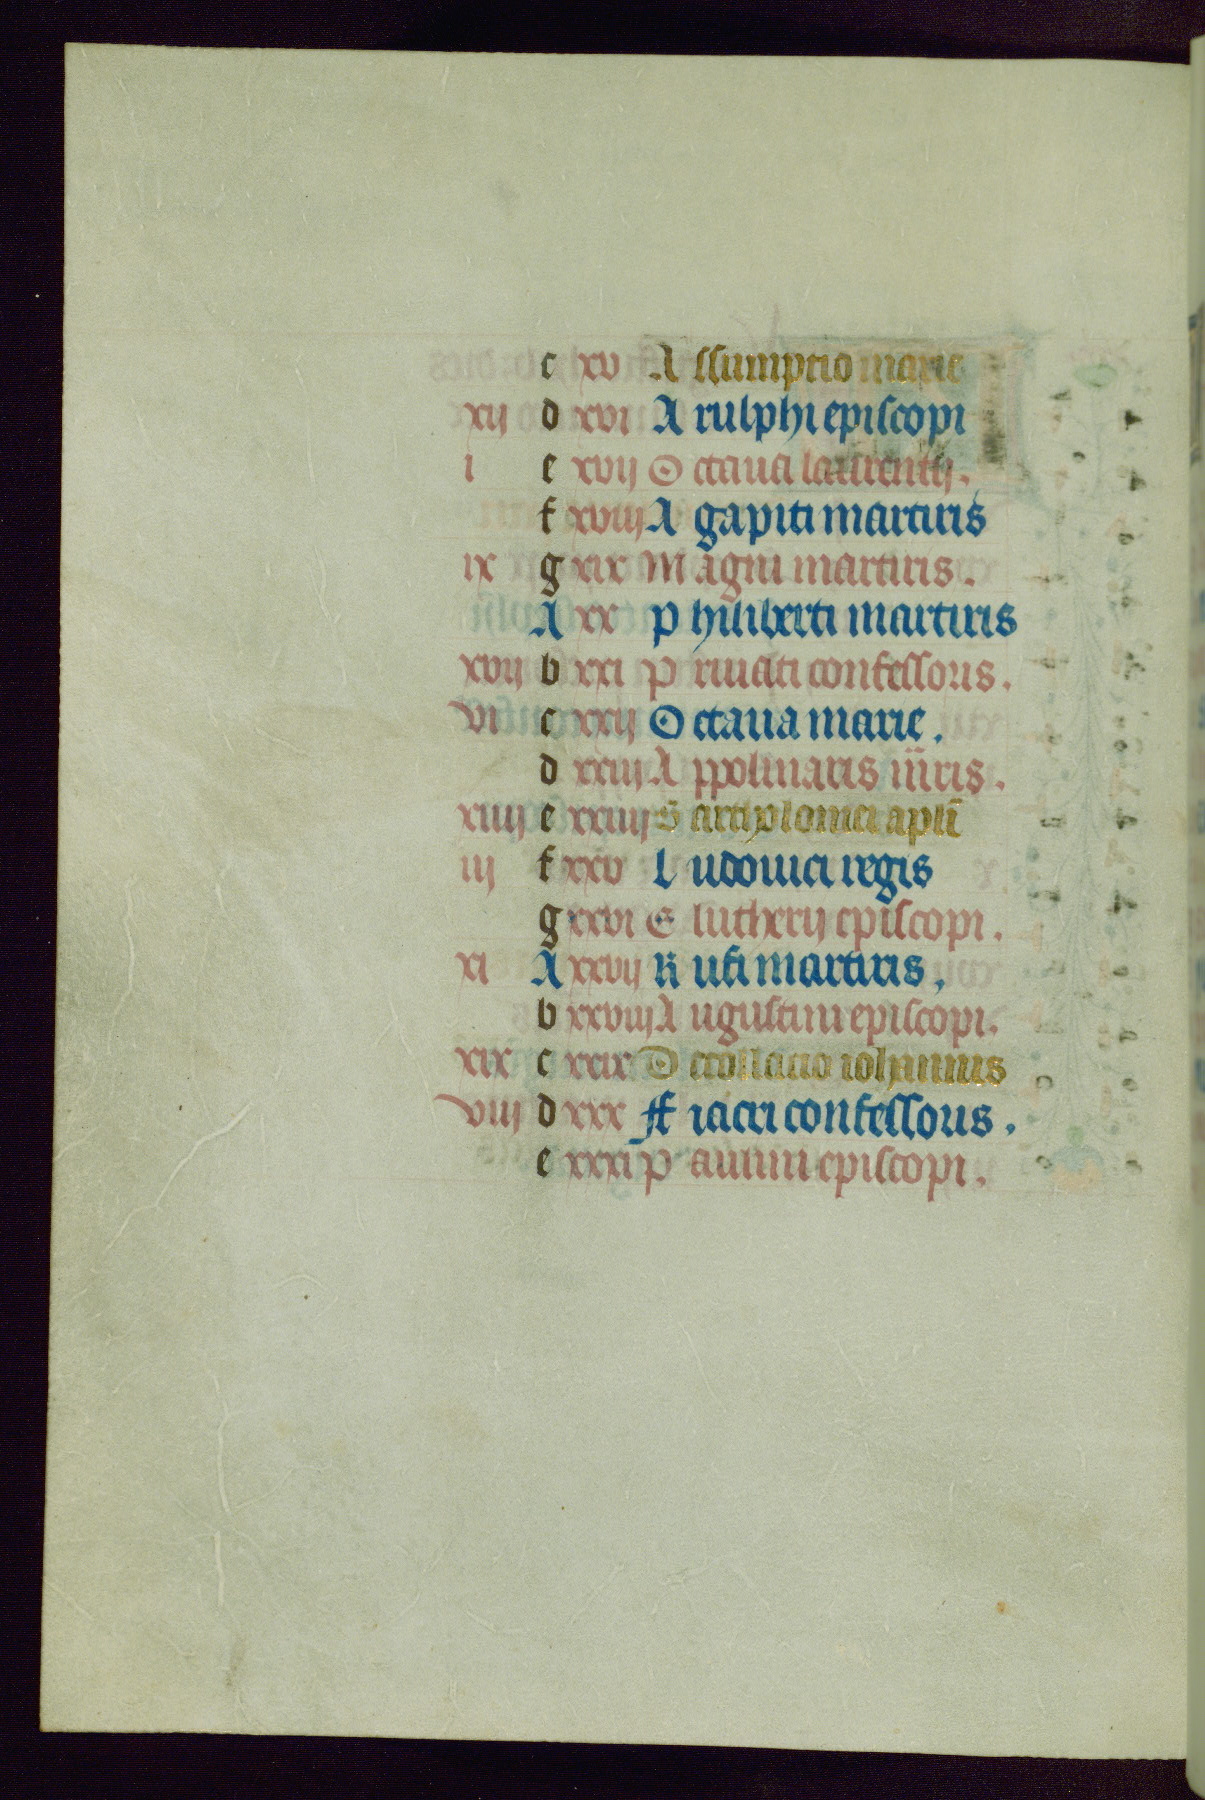 c xv Assumptio marie
xij d xvi Arulphi episcopi
i e xvij Octaua laurentij.
f xviij Agapiti martiris
ix g xix Magni martiris.
A xx Philiberti martiris
xvij b xxi Priuati confessoris.
vi c xxij Octaua marie.
d xxiij Appolinaris m̄iris.
xiiij e xxiiij Bartholomei apl̄i
iij f xxv Ludouici regis
g xxvi Eleutherij episcopi.
xi A xxvij Rufi martiris.
b xxviij Augustini episcopi.
xix c xxix Decollacio iohannis
viij d xxx Ffiacri confessoris.
e xxxi Paulini episcopi.